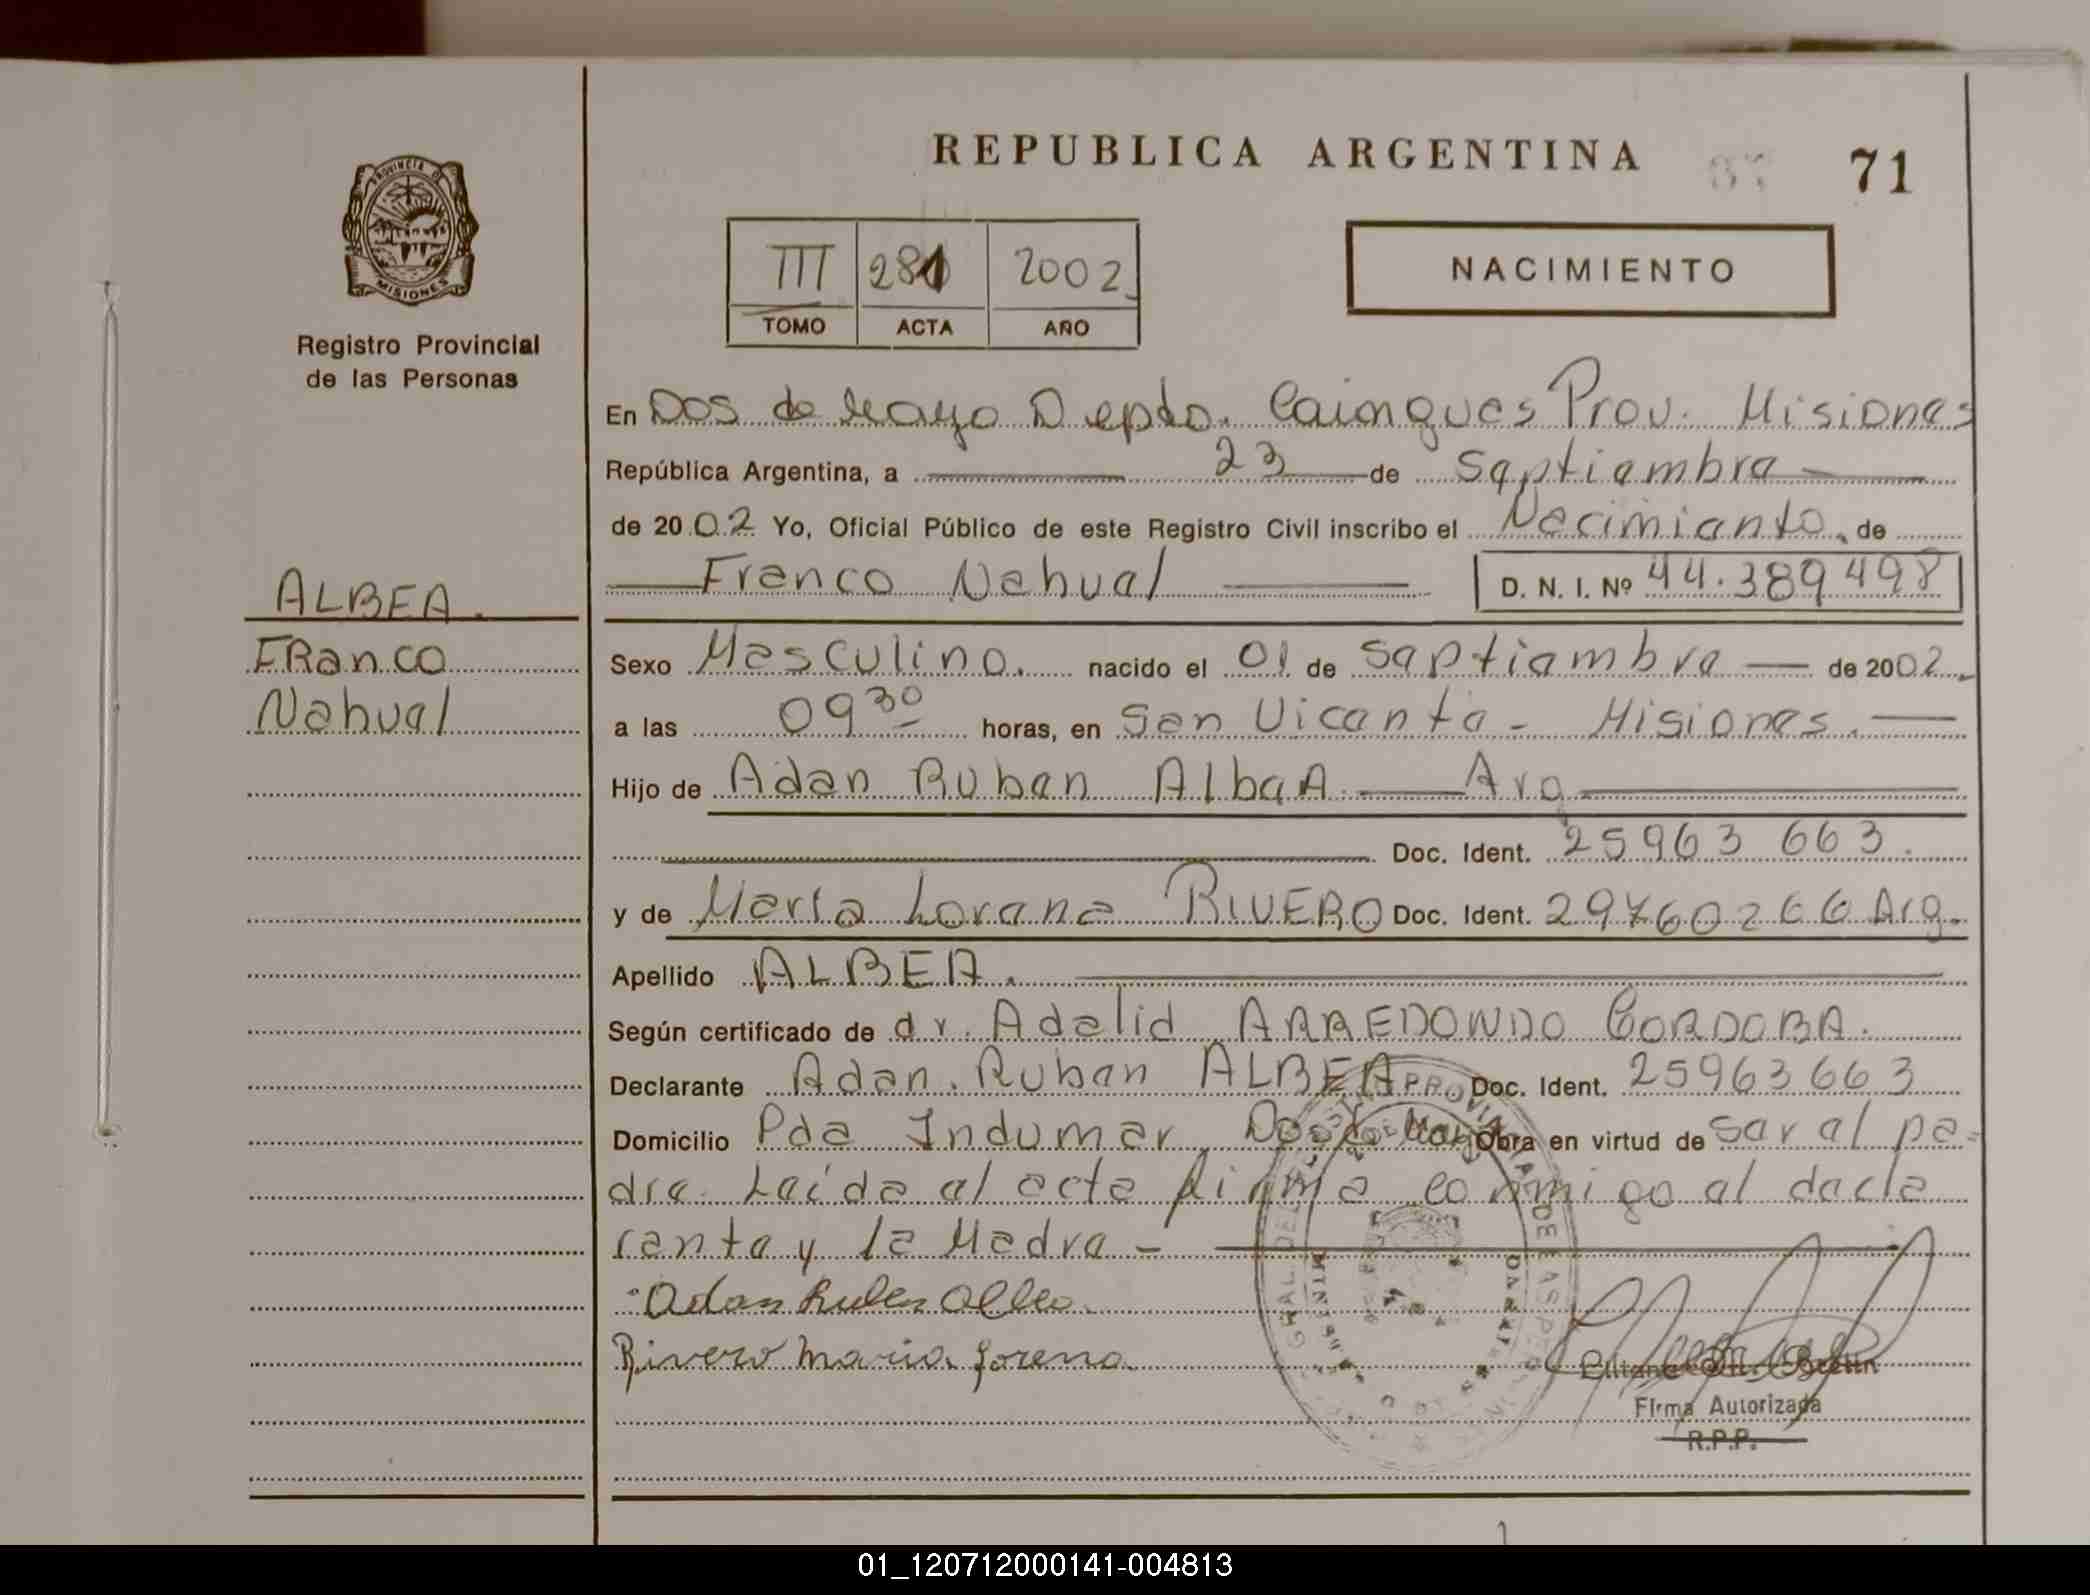 REPUBLICA ARGENTINA
71
PROVINCIA DE
MISIONES
Registro Provincial
de las Personas
III 281 2002
TOMO ACTA AÑO
NACIMIENTO
ALBEA.
FRanco
Nahuel
En Dos de Mayo Depto. Cainguas Prov. Misiones
República Argentina, a 23 de Septiembre
de 2002 Yo, Oficial Público de este Registro Civil inscribo el Nacimiento de
Franco Nahuel D. N. I. Nº 44.389498
Sexo Masculino. nacido el 01 de Septiembre de 2002.
a las 09 30 horas, en San Vicente - Misiones.
Hijo de Adan Ruben AlbeA Arg
Doc. Ident. 25963 663.
y de María Lorena RIVERO Doc. Ident. 29760266 Arg.
Apellido ALBEA.
Según certificado de dr. Adalid ARREDONDO CORDOBA.
Declarante Adan Ruben ALBEA Doc. Ident. 25963663
Domicilio Pda Indumar Dos de Mayo Obra en virtud de ser el pa=
dre. Leída el acta firma conmigo el decla
rante y la Madre -
Adan Ruben Albea.
Rivero María Lorena.
Firma Autorizada
R.P.P.
01_120712000141-004813